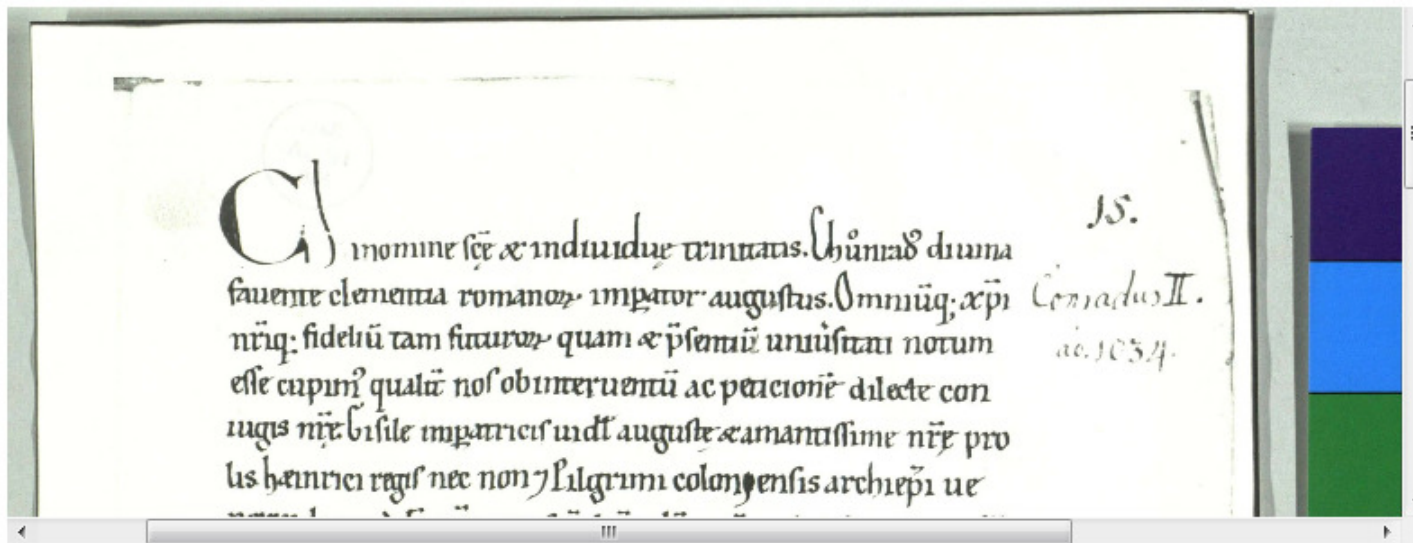 C) innomine sc̄ę & indiuiduę trinitatis. Chůnrad9 diuina
fauente clementia romanoꝝ imꝑator augustus. Omniūq; xp̄i
nr̄iq; fideliū tam futuroꝝ quam & p̄sentiū uniu'sitati notum
esse cupim9 qualit̄ nos obinteruentū ac peticionē dilecte con
iugis nr̄ę Gisile imꝑatricis uidl̄t augustę & amantissime nr̄ę pro
lis hæinrici regis nec non ⁊ Piligrimi coloniensis archiep̄i ue
15.
Conradus II.
ao. 1034.